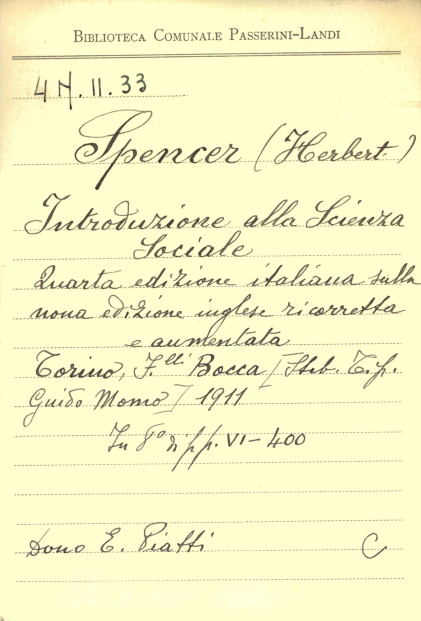 BIBLIOTECA COMUNALE PASSERINI-LANDI
4 N. II. 33
Spencer (Herbert)
Introduzione alla Scienza
Sociale
Quarta edizione italiana sulla
nona edizione inglese ricorretta
e aumentata
Torino, F.lli Bocca [Stab. Tip.
Guido Momo] 1911
In 8° di pp. VI-400
Dono E. Piatti
C